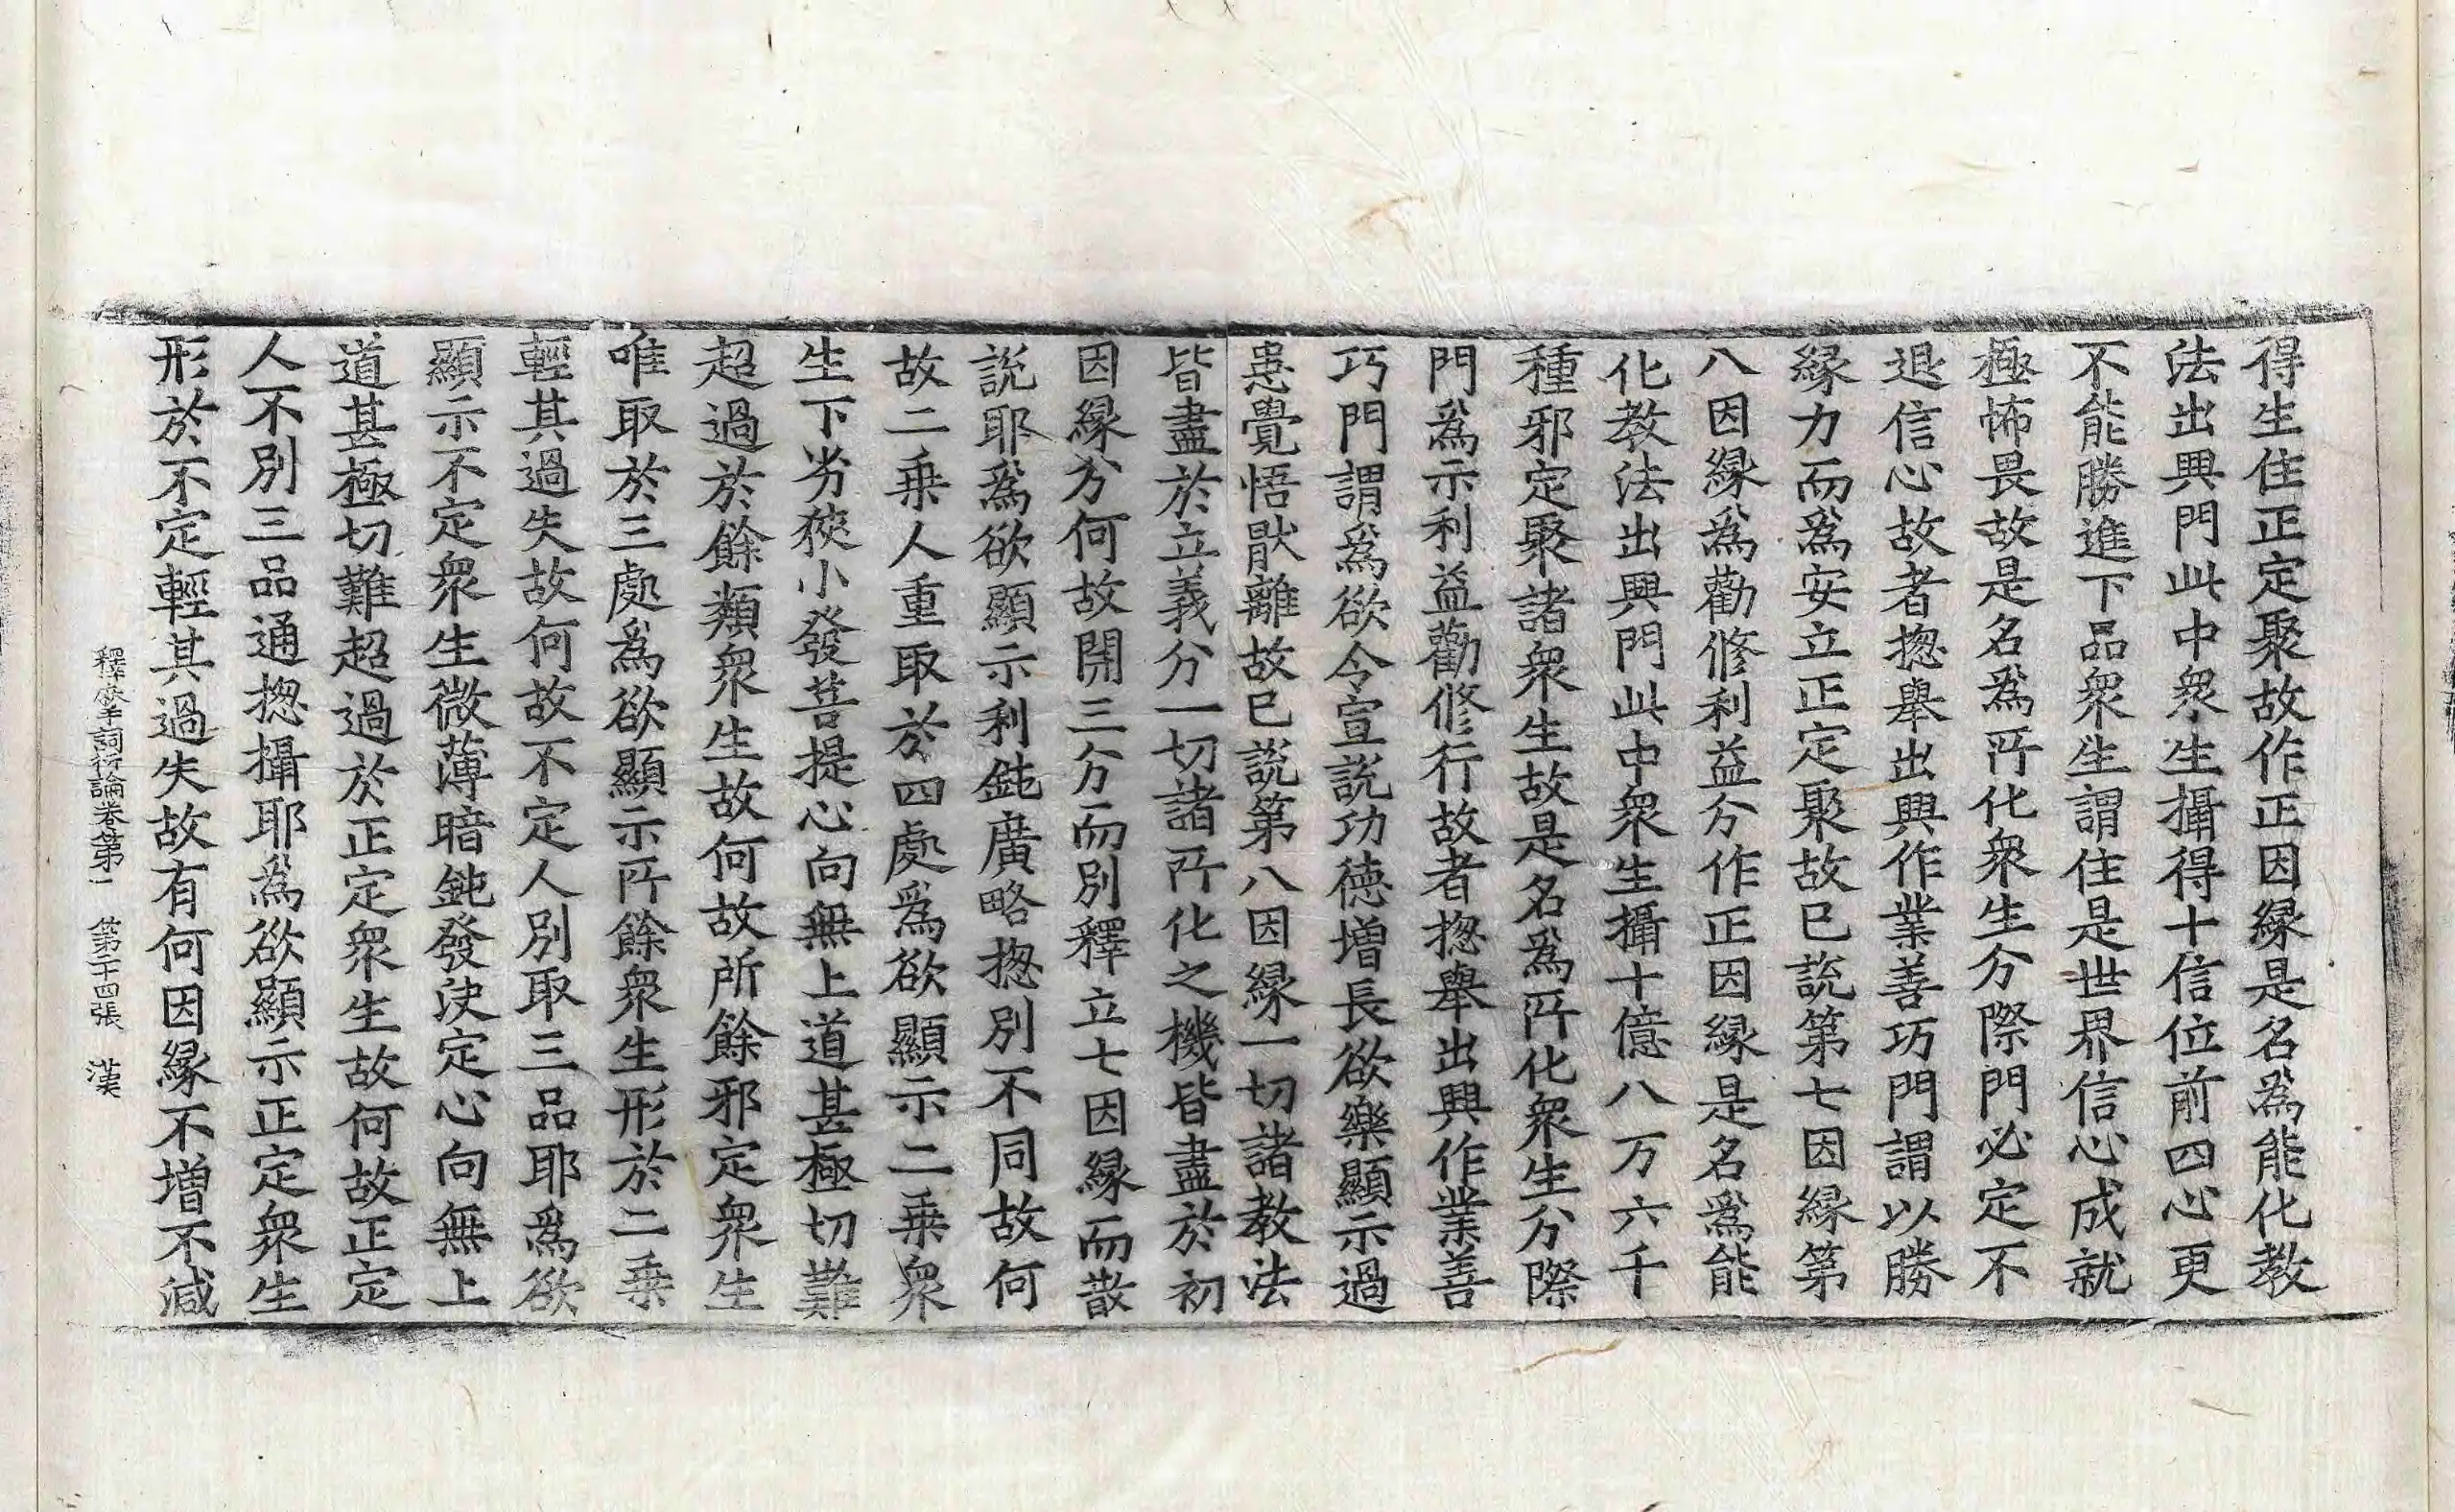 得生住正定聚故作正因縁是名爲能化教
法出興門此中衆生攝得十信位前四心更
不能勝進下品衆生謂住是世界信心成就
極怖畏故是名爲所化衆生分際門必定不
退信心故者揔舉出興作業善巧門謂以勝
縁力而爲安立正定聚故已說第七因縁第
八因縁爲勸修利益分作正因縁是名爲能
化教法出興門此中衆生攝十億八万六千
種邪定聚諸衆生故是名爲所化衆生分際
門爲示利益勸修行故者揔舉出興作業善
巧門謂爲欲令宣說功德增長欲樂顯示過
患覺悟猒離故已說第八因縁一切諸教法
皆盡於立義分一切諸所化之機皆盡於初
因縁分何故開三分而別釋立七因縁而散
說耶爲欲顯示利鈍廣略揔別不同故何
故二乗人重取於四處爲欲顯示二乗衆
生下劣狹小發菩提心向無上道甚極切難
超過於餘類衆生故何故所餘邪定衆生
唯取於三處爲欲顯示所餘衆生形於二乗
輕其過失故何故不定人別取三品耶爲欲
顯示不定衆生微薄暗鈍發決定心向無上
道甚極切難超過於正定衆生故何故正定
人不別三品通揔攝耶爲欲顯示正定衆生
形於不定輕其過失故有何因縁不增不減
釋摩訶衍論卷第一 第二十四張 漢